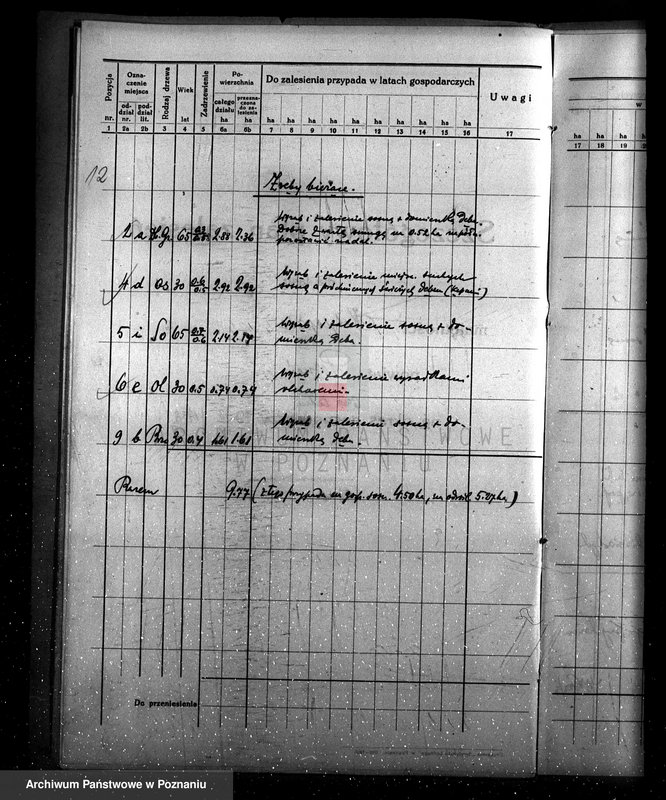 Pozycja
nr.
Oznaczenie miejsca
oddział nr.
poddział lit.
Rodzaj drzewa
Wiek
lat
Zadrzewienie
Powierzchnia
całego działu
ha
przeznaczona do zalesienia
ha
Do zalesienia przypada w latach gospodarczych
ha ha ha ha ha ha ha ha ha ha
Uwagi
1 2a 2b 3 4 5 6a 6b 7 8 9 10 11 12 13 14 15 16 17
12
Zręby bieżące.
2 a 65 2.88 2.36
Wyrąb i zalesienie sosną z domieszką dęba.
na 0.52 ha
pozostawić nadal.
4 d os 30 0.6 0.5 2.92 2.92
Wyrąb i zalesienie
sosną a
5 i So 65 0.7 0.6 2.14 2.14
Wyrąb i zalesienie sosną z do-
mieszką dęba.
6 e ol 30 0.5 0.74 0.74
Wyrąb i zalesienie wysadkami
olchowemi.
9 b Brz 30 0.4 1.61 1.61
Wyrąb i zalesienie sosną z do-
mieszką dęba.
Razem 9.77 (z tego przypada na gosp. sosn. 4.50 ha, na odrośl 5.27 ha)
Do przeniesienia
ha ha ha
17 18 19
ARCHIWUM PAŃSTWOWE
W POZNANIU
Archiwum Państwowe w Poznaniu